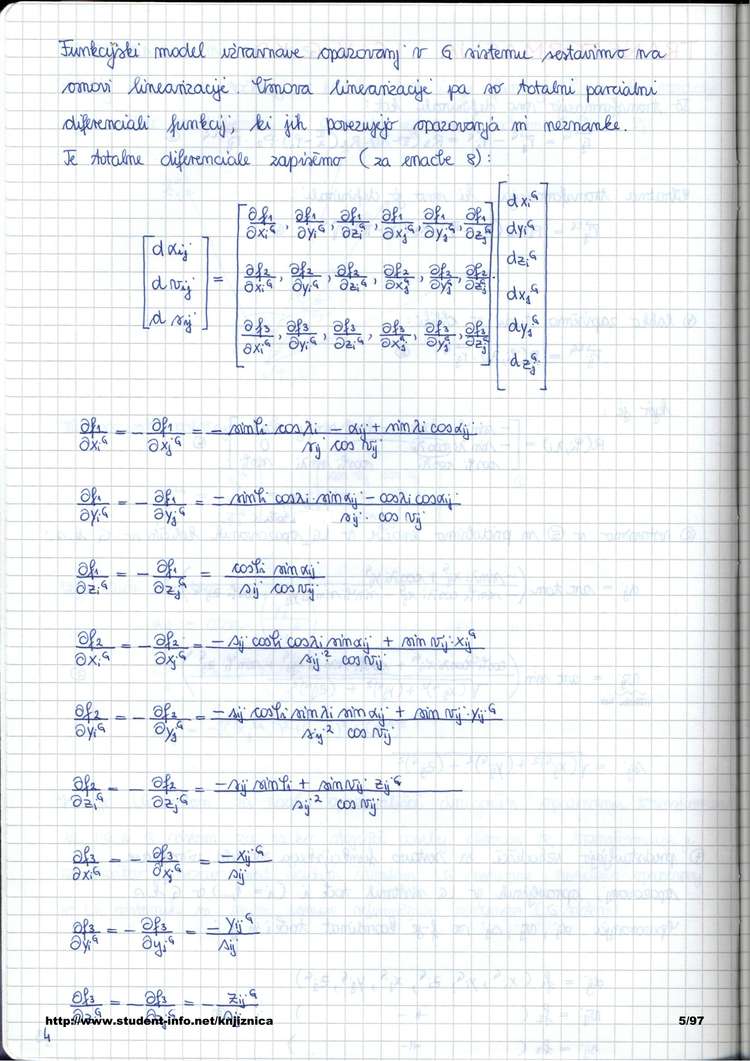 Funkcijski model izravnave opazovanj v G sistemu sestavimo na
osnovi linearizacije. Osnova linearizacije pa so totalni parcialni
diferenciali funkcij, ki jih povezujejo opazovanja in neznanke.
Te totalne diferenciale zapišemo (za enačbe 8):
[dαij dvij dsij] = [∂f1/∂xi^G, ∂f1/∂yi^G, ∂f1/∂zi^G, ∂f1/∂xj^G, ∂f1/∂yj^G, ∂f1/∂zj^G
∂f2/∂xi^G, ∂f2/∂yi^G, ∂f2/∂zi^G, ∂f2/∂xj^G, ∂f2/∂yj^G, ∂f2/∂zj^G
∂f3/∂xi^G, ∂f3/∂yi^G, ∂f3/∂zi^G, ∂f3/∂xj^G, ∂f3/∂yj^G, ∂f3/∂zj^G] · [dxi^G dyi^G dzi^G dxj^G dyj^G dzj^G]
∂f1/∂xi^G = - ∂f1/∂xj^G = (- sinφi cosλi - αij + sinλi cosαij)/(sij cos vij)
∂f1/∂yi^G = - ∂f1/∂yj^G = (- sinφi cosλi · sinαij - cosλi cosαij)/(sij · cos vij)
∂f1/∂zi^G = - ∂f1/∂zj^G = (cosφi sinαij)/(sij cosvij)
∂f2/∂xi^G = - ∂f2/∂xj^G = (- sij cosφi cosλi sinαij + sin vij · xij^G)/(sij^2 cosvij)
∂f2/∂yi^G = - ∂f2/∂yj^G = (- sij cosφi sinλi sinαij + sin vij · yij^G)/(sij^2 cos vij)
∂f2/∂zi^G = - ∂f2/∂zj^G = (- sij sinφi + sinvij zij^G)/(sij^2 cosvij)
∂f3/∂xi^G = - ∂f3/∂xj^G = - xij^G/sij
∂f3/∂yi^G = - ∂f3/∂yj^G = - yij^G/sij
∂f3/∂zi^G = - ∂f3/∂zj^G = - zij^G/sij
http://www.student-info.net/knjiznica 5/97
4